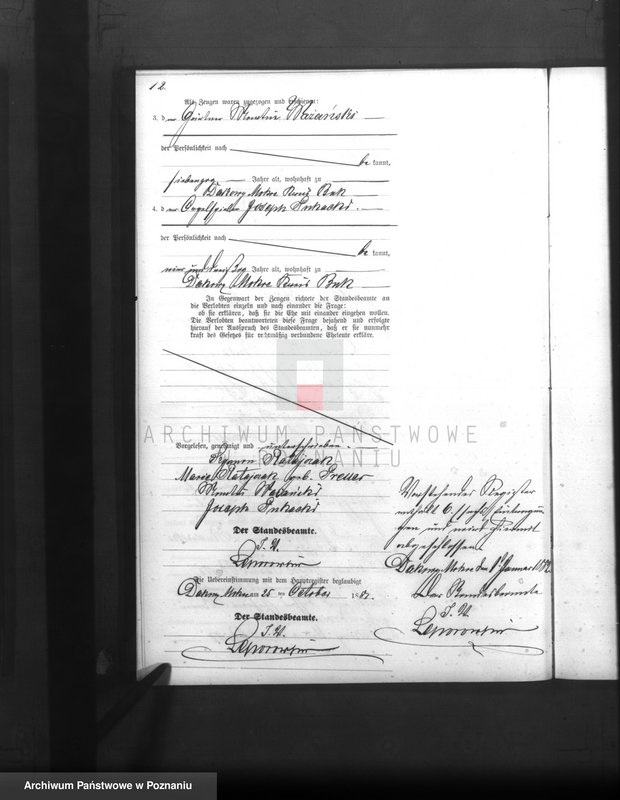 12.
Als Zeugen waren zugezogen und erschienen:
3. der
der Persönlichkeit nach
be kannt,
siebenzig Jahre alt, wohnhaft zu
Dakowy Mokre Kreis Buk
4. der Orgelspieler Joseph
der Persönlichkeit nach
be kannt,
neun und dreißig Jahre alt, wohnhaft zu
Dakowy Mokre Kreis Buk
In Gegenwart der Zeugen richtete der Standesbeamte an
die Verlobten einzeln und nach einander die Frage:
ob sie erklären, daß sie die Ehe mit einander eingehen wollen.
Die Verlobten beantworteten diese Frage bejahend und erfolgte
hierauf der Ausspruch des Standesbeamten, daß er sie nunmehr
kraft des Gesetzes für rechtmäßig verbundene Eheleute erkläre.
ARCHIWUM PAŃSTWOWE
W POZNANIU
Vorgelesen, genehmigt und unterschrieben.
Ratajczak
Ratajczak geb.
Joseph
Der Standesbeamte.
J. V.
Die Uebereinstimmung mit dem Hauptregister beglaubigt
Dakowy Mokre am 25 ten October 1882.
Der Standesbeamte.
J. V.
Vorstehendes Register
enthält 6 (sechs) Eintragun
gen und wird hiermit
abgeschlossen.
Dakowy Mokre den Januar
Der Standesbeamte
J. V.
Archiwum Państwowe w Poznaniu